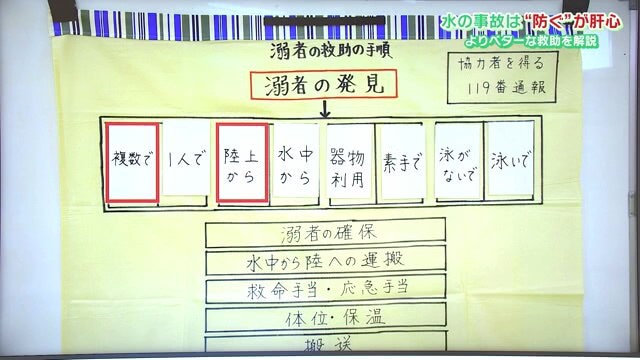 水の事故は"防ぐ"が肝心
よりベターな救助を解説
溺者の救助の手順
協力者を得る
119番通報
溺者の発見
複数で
1人で
陸上
から
水中
から
器物
利用
素手で
泳が
ないで
泳いで
溺者の確保
水中から陸への運搬
救命手当・応急手当
体位・保温
搬送